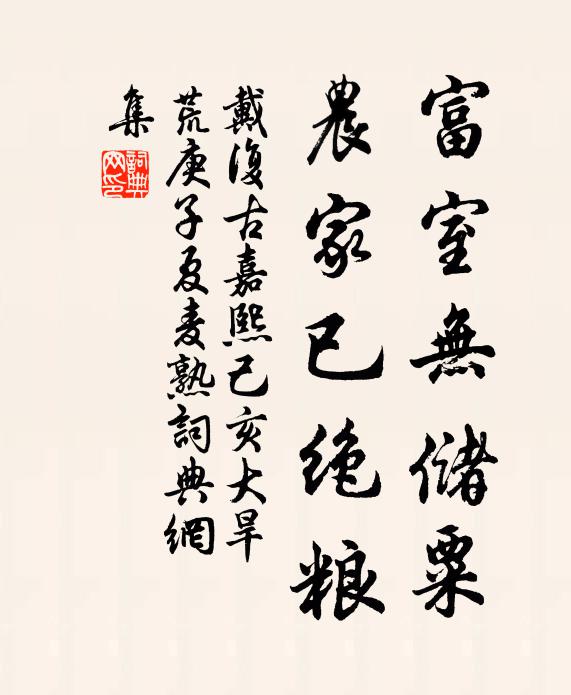 富室無儲粟
農家已绝粮
戴復古嘉熙己亥大旱
荒庚子夏麦熟詞典網
集
詞典
网印